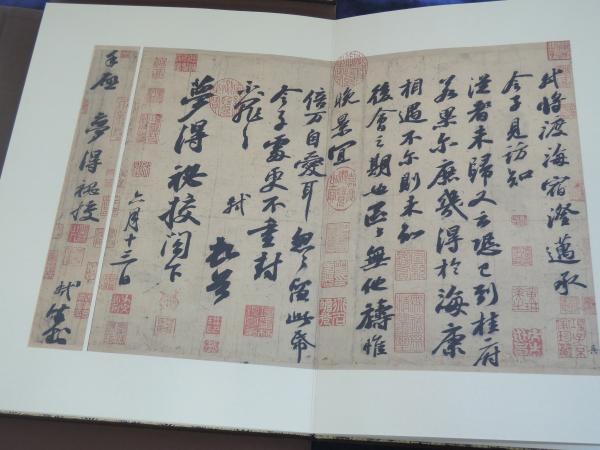 軾將渡海宿澄邁承
令子見訪知
從者未歸又云恐已到桂府
若果尔庶幾得於海康
相遇不尔則未知
後會之期也區々無他禱惟
晚景宜
倍万自愛耳忽々留此帋
令子處更不重封
不罪々
軾 頓首
夢得秘校閣下
六月十三日
手啟 夢得秘校
軾 封